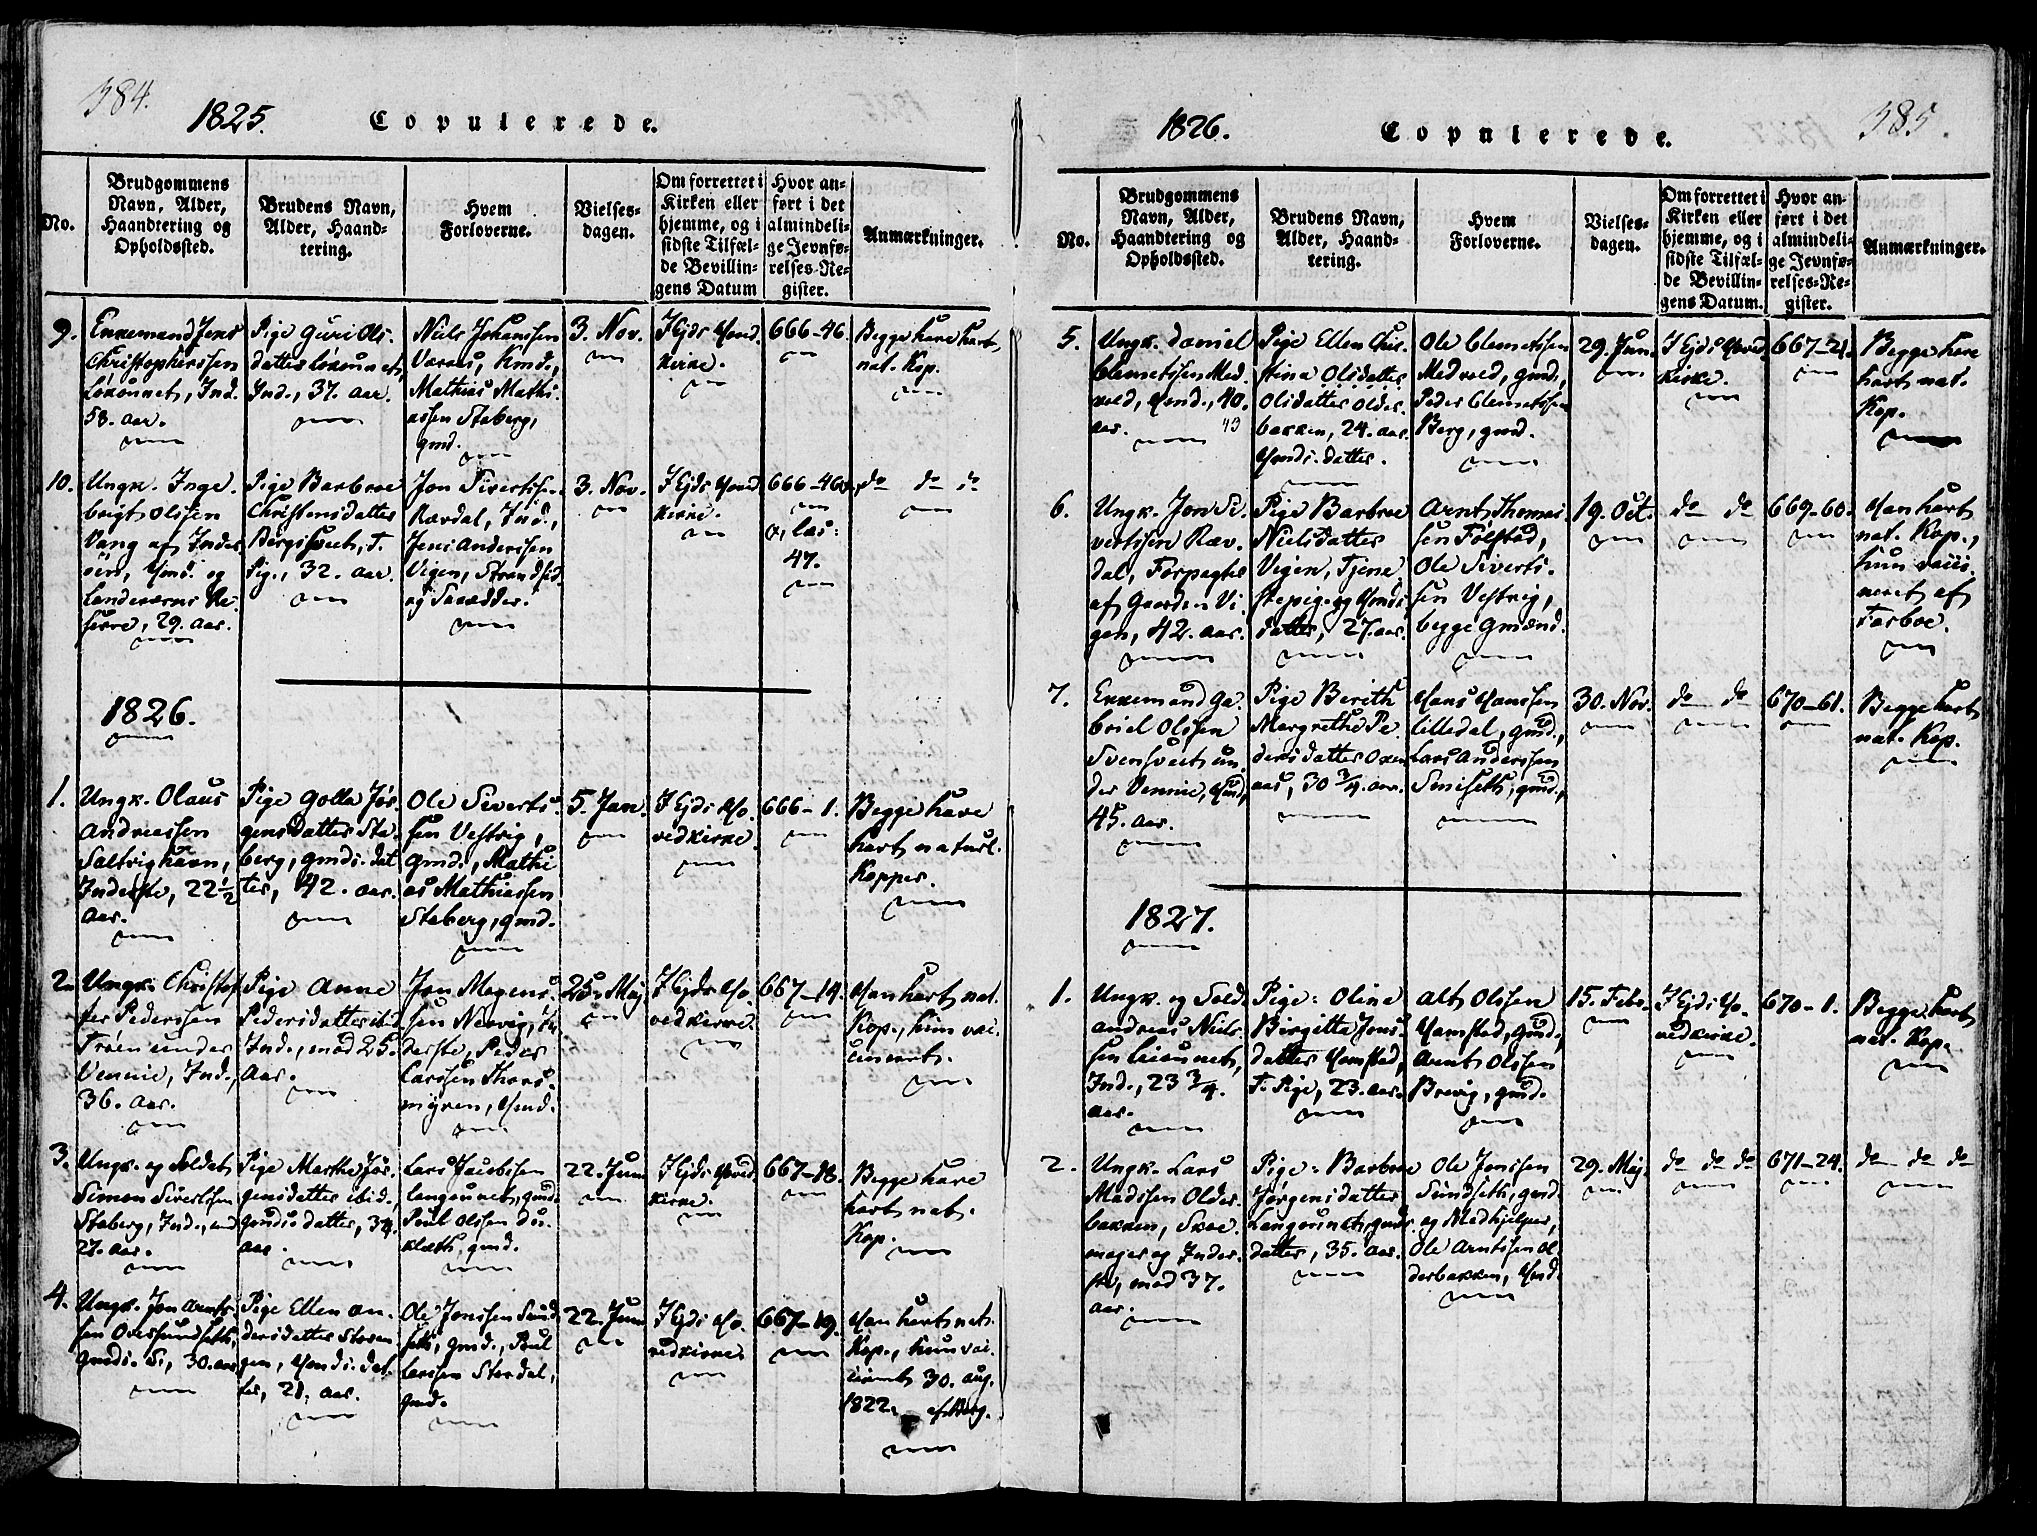 384.
1825.
Copulerede.
No.
Brudgommens
Navn, Alder,
Haandtering og
Opholdssted.
Brudens Navn,
Alder, Haand-
tering.
Hvem
Forloverne.
Vielses-
dagen.
Om forrettet i
Kirken eller
hjemme, og i
sidste Tilfæl-
de Bevillin-
gens Datum
Hvor an-
ført i det
almindeli-
ge Jevnfø-
relses-Re-
gister.
Anmærkninger.
9.
Enkemand Jens
Christophersen
58. aar.
Pige Guri Ols-
datter
Ind., 37. aar.
Niels Johanssen
Mathias Mathi-
assen Staberg,
gmd.
3. Nov.
I Ejds Hoved
kirke.
666-46.
Begge have havt
nat. Kop.
10.
Ungk. Inge-
brigt Olssen
Vang af Inder-
öen, Hmd. og
Landeværns Re-
serve, 29. aar.
Pige Barbroe
Christensdatter
Pig., 32. aar.
Jon Sivertsen
Rævdal, Ind.,
Jens Anderssen
Vigen, Strandsid.
3. Nov.
I Ejds Hoved
kirke.
666-46
47.
do do do
1826.
1.
Ungk. Olaus
Andreassen
Saltvighavn,
Inderste, 22½
aar.
Pige Golla Jør-
gensdatter Sta-
berg, gmds. dat
ter, 42. aar.
Ole Siverts-
sen Vestvig,
gmd., Mathi-
as Mathiassen
Staberg, gmd.
5. Jan.
I Ejds Ho-
vedkirke.
666-1.
Begge have
havt naturl.
Kopper.
2.
Ungk. Christof
fer Pederssen
Trøen under
Vennie, Ind.,
36. aar.
Pige Anne
Pedersdatter ibid.
Ind., mod 25.
aar.
Jon Mogens-
sen Nervig, In-
derste, Peder
Larssen Thors-
myren, Hmd.
25. Maj
I Ejds Ho-
vedkirke.
667-14.
Han havt nat.
Kop., hun vac-
cineret.
3.
Ungk. og Soldat
Simon Sivertssen
Staberg, Ind., mod
27. aar.
Pige Marthe Jør-
gensdatter ibid.
gmds. datter, 34.
aar.
Lars Jacobssen
Langaunet, gmd.
Poul Olssen
gmd.
22. Juni
I Ejds Hoved
kirke.
667-18.
Begge have
havt nat.
Kop.
4.
Ungk. Jon Arnts-
sen
gmds. S., 30. aar
Pige Ellen An-
dersdatter
Hmds. dat-
ter, 28. aar.
Ole Jonssen Sund-
seth, gmd., Poul
Larssen Stordal,
gmd.
22. Juni
I Ejds Ho-
vedkirke
667-19.
Han havt nat.
Kop., hun vac-
cineret 30. Aug.
1822. af Berg.
1826.
Copulerede.
385.
No.
Brudgommens
Navn, Alder,
Haandtering og
Opholdssted.
Brudens Navn,
Alder, Haand-
tering.
Hvem
Forloverne.
Vielses-
dagen.
Om forrettet i
Kirken eller
hjemme, og i
sidste Tilfæl-
de Bevillin-
gens Datum.
Hvor an-
ført i det
almindeli-
ge Jevnfø-
relses-Re-
gister.
Anmærkninger.
5.
Ungk. Daniel
Clemetssen Med-
vold, Hmd., 40.
aar.
Pige Ellen Chri-
stina Olsdatter
Olsdatter Older-
bakken, 24. aar.
Hmds. datter.
Ole Clemetssen
Medvold, gmd.,
Peder Clemetssen
Berg, gmd.
29. Jun.
I Ejds Hoved
kirke.
667-21.
Begge have
havt nat.
Kop.
6.
Ungk. Jon Si-
vertssen Ræv-
dal, Forpagter
af Gaarden Vi-
gen, 42. aar.
Pige Barbroe
Nielsdatter
Vigen, Tjene-
stepige og Hmds.
datter, 27. aar.
Arnt Thomes-
sen Følstad,
Ole Siverts-
sen Vestvig,
begge Gmænd.
19. Oct.
do do
669-60.
Han havt
nat. Kop.,
hun vacci-
neret af
Farboe.
7.
Enkemand Ga-
briel Olssen
Svensveet un-
der Vennie, Hmd,
45. aar.
Pige Berith
Margrethe Pe-
dersdatter Oxen-
aas, 30 ¾. aar.
Hans Hanssen
Lilledal, gmd.,
Lars Anderssen
Smiseth, gmd.,
30. Nov.
do do
670-61.
Begge havt
nat. Kop.
1827.
1.
Ungk. og Sold.
Andreas Niels-
sen
Ind., 23 ¾.
aar.
Pige Oline
Birgitta Jons-
datter Hamstad,
T. Pige, 23. aar.
Alt Olssen
Hamstad, gmd.,
Arnt Olssen
Brevig, gmd.
15. Febr.
I Ejds Ho-
vedkirke.
670-1.
Begge havt
nat. Kop.
2.
Ungk. Lars
Madssen Older-
bakken, Skoe-
mager og Inder-
ste, mod 37.
aar.
Pige Barbroe
Jørgensdatter
Langaunet, gmds
datter, 35. aar.
Ole Jonssen
Sundseth, gmd.
og Medhjelper,
Ole Arntssen Ol-
derbakken, Hmd.
29. Maj.
do do do
671-24.
do do do